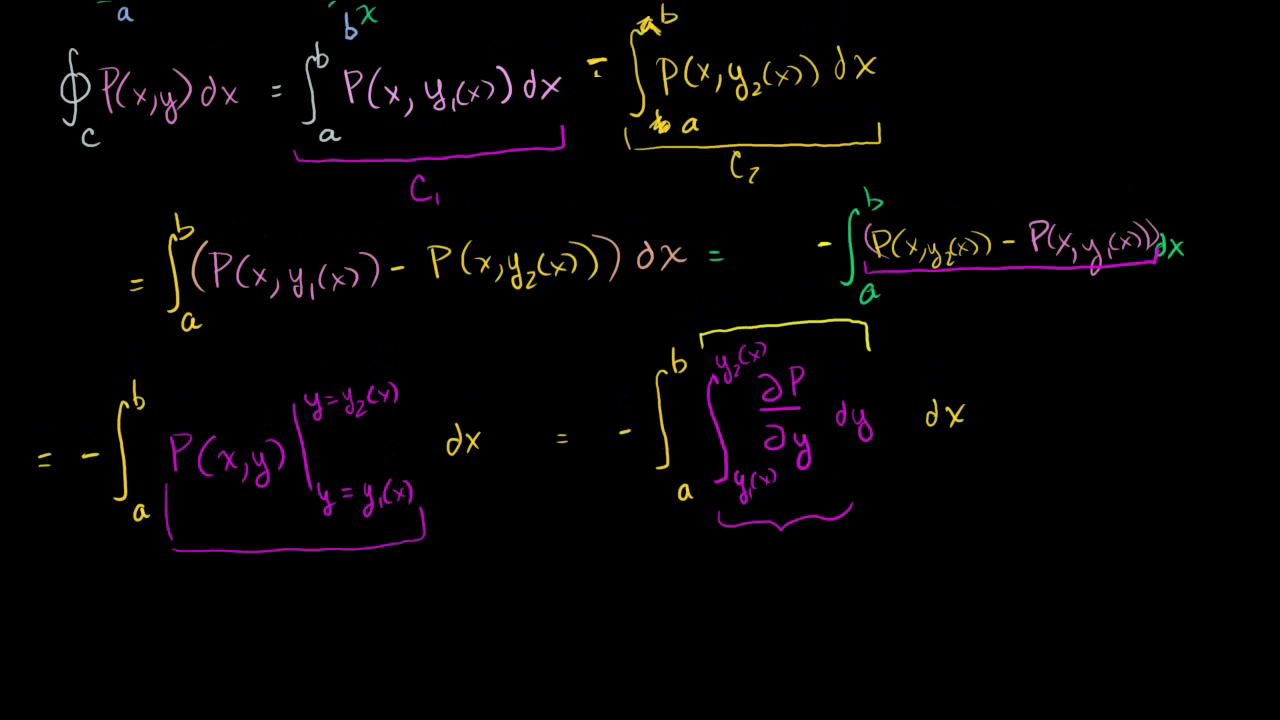 a b x
∮_C P(x,y) dx = ∫_a^b P(x, y₁(x)) dx - ∫_a^b P(x, y₂(x)) dx
C₁ C₂
= ∫_a^b (P(x, y₁(x)) - P(x, y₂(x))) dx = - ∫_a^b (P(x, y₂(x)) - P(x, y₁(x))) dx
= - ∫_a^b P(x,y) |_{y = y₁(x)}^{y = y₂(x)} dx = - ∫_a^b ∫_{y₁(x)}^{y₂(x)} ∂P/∂y dy dx